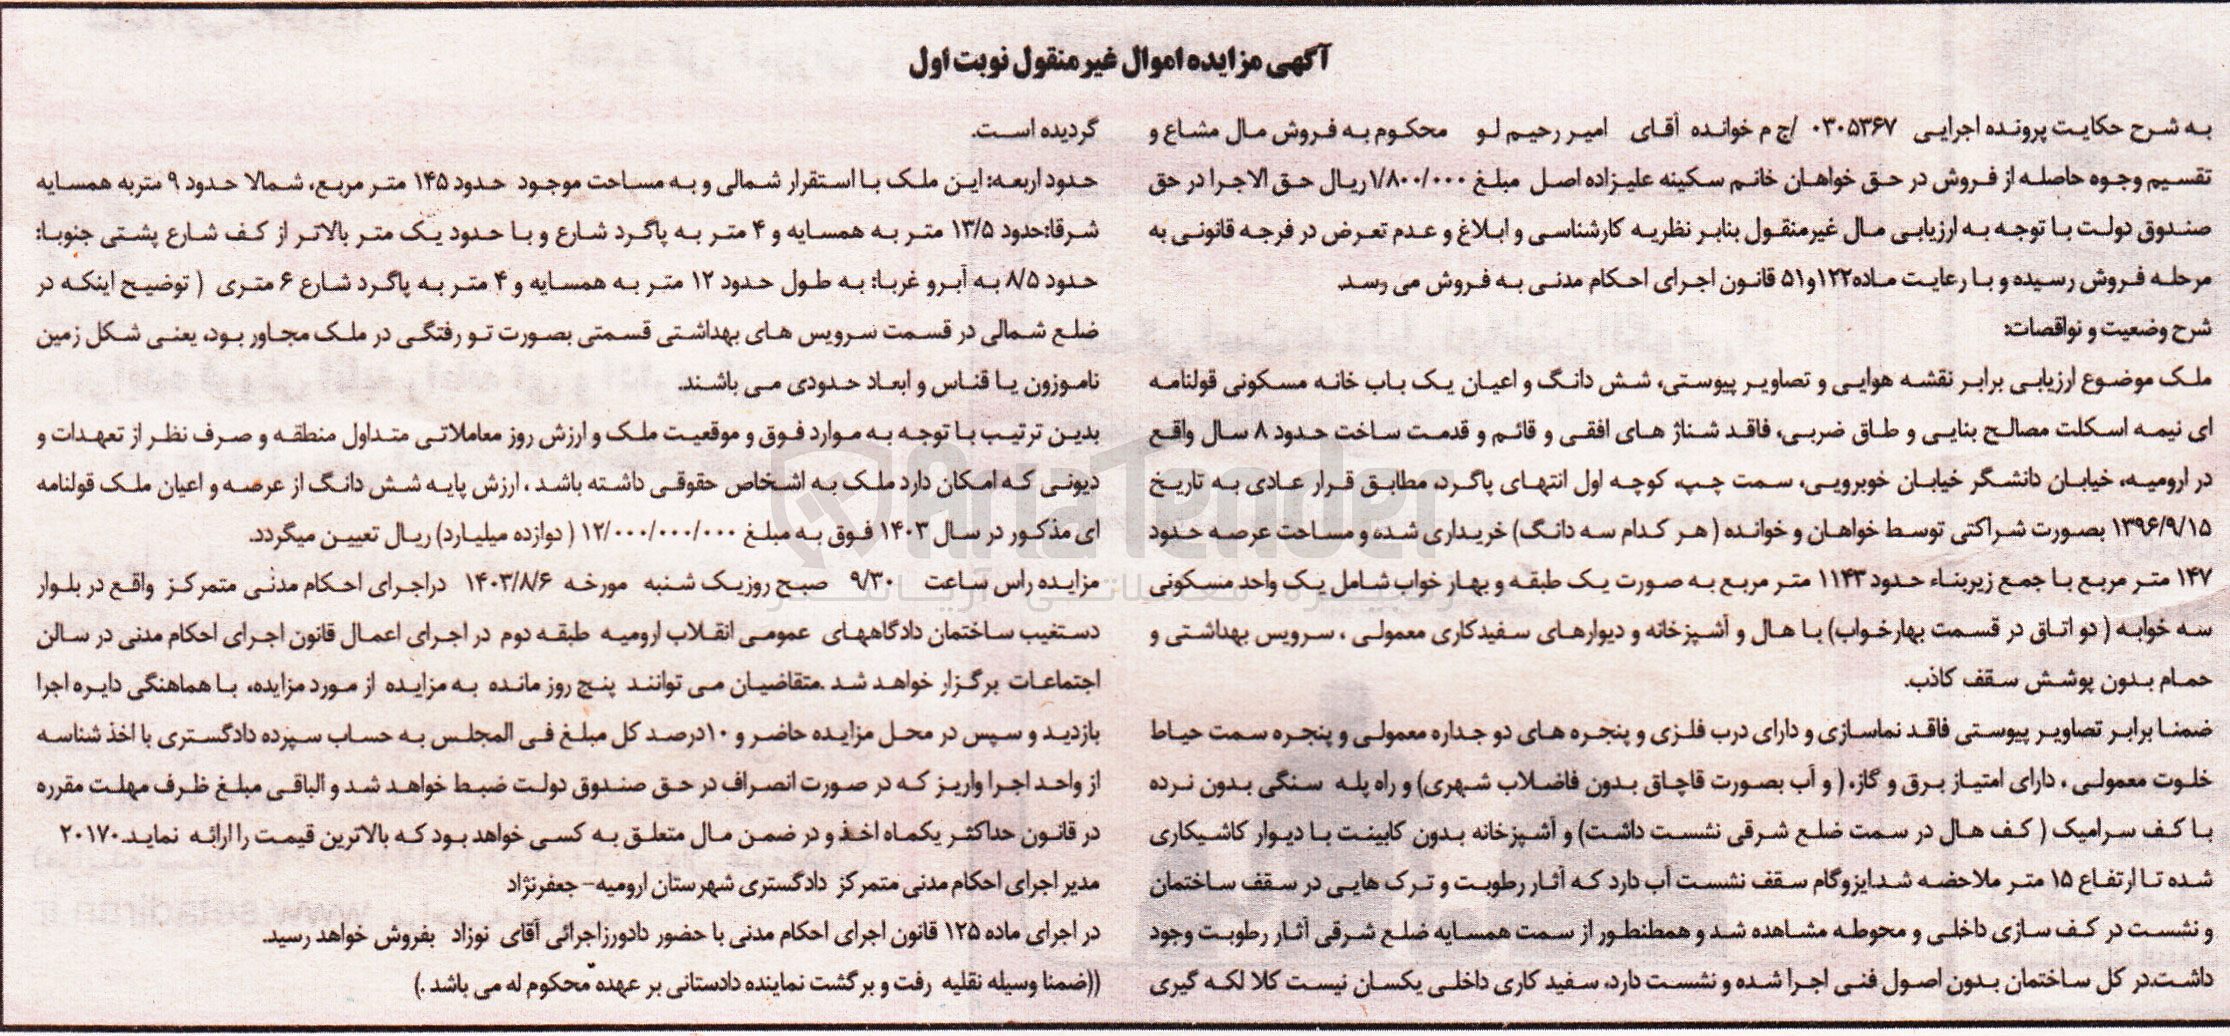 آگهی مزایده اموال غیر منقول نوبت اول
به شرح حکایت پرونده اجرایی ۰۳۰۵۳۶۷ /ج م خوانده آقای امیر رحیم لو محکوم به فروش مال مشاع و
تقسیم وجوه حاصله از فروش در حق خواهان خانم سکینه علیزاده اصل مبلغ ۱/۸۰۰/۰۰۰ ریال حق الاجرا در حق
صندوق دولت با توجه به ارزیابی مال غیرمنقول بنابر نظریه کارشناسی و ابلاغ و عدم تعرض در فرجه قانونی به
مرحله فروش رسیده و با رعایت ماده۱۲۲و۵۱ قانون اجرای احکام مدنی به فروش می رسد.
شرح وضعیت و نواقصات:
ملک موضوع ارزیابی برابر نقشه هوایی و تصاویر پیوستی، شش دانگ و اعیان یک باب خانه مسکونی قولنامه
ای نیمه اسکلت مصالح بنایی و طاق ضربی، فاقد شناژ های افقی و قائم و قدمت ساخت حدود ۸ سال واقع
در ارومیه، خیابان دانشگر خیابان خوبرویی، سمت چپ، کوچه اول انتهای پاگرد، مطابق قرار عادی به تاریخ
۱۳۹۶/۹/۱۵ بصورت شراکتی توسط خواهان و خوانده ( هر کدام سه دانگ) خریداری شده و مساحت عرصه حدود
۱۴۷ متر مربع با جمع زیربناء حدود ۱۱۴۳ متر مربع به صورت یک طبقه و بهار خواب شامل یک واحد مسکونی
سه خوابه ( دو اتاق در قسمت بهارخواب) با هال و آشپزخانه و دیوارهای سفیدکاری معمولی ، سرویس بهداشتی و
حمام بدون پوشش سقف کاذب.
ضمنا برابر تصاویر پیوستی فاقد نماسازی و دارای درب فلزی و پنجره های دو جداره معمولی و پنجره سمت حیاط
خلوت معمولی ، دارای امتیاز برق و گاز، ( و آب بصورت قاچاق بدون فاضلاب شهری) و راه پله سنگی بدون نرده
با کف سرامیک ( کف هال در سمت ضلع شرقی نشست داشت) و آشپزخانه بدون کابینت با دیوار کاشیکاری
شده تا ارتفاع ۱۵ متر ملاحضه شدایزوگام سقف نشست آب دارد که آثار رطوبت و ترک هایی در سقف ساختمان
و نشست در کف سازی داخلی و محوطه مشاهده شد و همطنطور از سمت همسایه ضلع شرقی آثار رطوبت وجود
داشت.در کل ساختمان بدون اصول فنی اجرا شده و نشست دارد، سفید کاری داخلی یکسان نیست کلا لکه گیری
گردیده است.
حدود اربعه: این ملک با استقرار شمالی و به مساحت موجود حدود ۱۴۵ متر مربع، شمالا حدود ۹ متربه همسایه
شرقا:حدود ۱۳/۵ متر به همسایه و ۴ متر به پاگرد شارع و با حدود یک متر بالاتر از کف شارع پشتی جنوبا:
حدود ۸/۵ به آبرو غربا: به طول حدود ۱۲ متر به همسایه و ۴ متر به پاگرد شارع ۶ متری ( توضیح اینکه در
ضلع شمالی در قسمت سرویس های بهداشتی قسمتی بصورت تو رفتگی در ملک مجاور بود، یعنی شکل زمین
ناموزون یا قناس و ابعاد حدودی می باشند.
بدین ترتیب با توجه به موارد فوق و موقعیت ملک و ارزش روز معاملاتی متداول منطقه و صرف نظر از تعهدات و
دیونی که امکان دارد ملک به اشخاص حقوقی داشته باشد ، ارزش پایه شش دانگ از عرصه و اعیان ملک قولنامه
ای مذکور در سال ۱۴۰۳ فوق به مبلغ ۱۲/۰۰۰/۰۰۰/۰۰۰ ( دوازده میلیارد) ریال تعیین میگردد.
مزایده راس ساعت ۹/۳۰ صبح روزیک شنبه مورخه ۱۴۰۳/۸/۶ دراجرای احکام مدنی متمرکز واقع در بلوار
دستغیب ساختمان دادگاههای عمومی انقلاب ارومیه طبقه دوم در اجرای اعمال قانون اجرای احکام مدنی در سالن
اجتماعات برگزار خواهد شد .متقاضیان می توانند پنج روز مانده به مزایده از مورد مزایده، با هماهنگی دایره اجرا
بازدید و سپس در محل مزایده حاضر و ۱۰درصد کل مبلغ فی المجلس به حساب سپرده دادگستری با اخذ شناسه
از واحد اجرا واریز که در صورت انصراف در حق صندوق دولت ضبط خواهد شد و الباقی مبلغ ظرف مهلت مقرره
در قانون حداکثر یکماه اخذ و در ضمن مال متعلق به کسی خواهد بود که بالاترین قیمت را ارائه نماید.۲۰۱۷۰
مدیر اجرای احکام مدنی متمرکز دادگستری شهرستان ارومیه- جعفرنژاد
در اجرای ماده ۱۲۵ قانون اجرای احکام مدنی با حضور دادورزاجرائی آقای نوزاد بفروش خواهد رسید.
((ضمنا وسیله نقلیه رفت و برگشت نماینده دادستانی بر عهده محکوم له می باشد .)
AriaTender